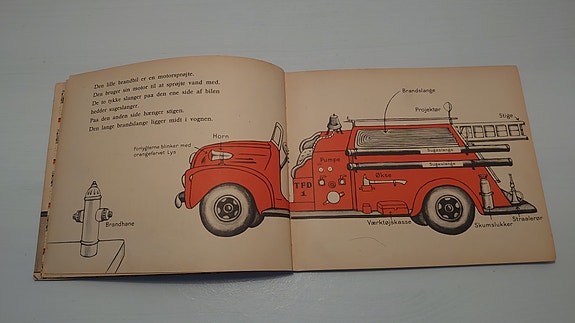 Den lille brandbil er en motorsprøjte.
Den bruger sin motor til at sprøjte vand med.
De to tykke slanger paa den ene side af bilen
hedder sugeslanger.
Paa den anden side hænger stigen.
Den lange brandslange ligger midt i vognen.
Horn
Forlygterne blinker med
orangefarvet Lys
Brandhane
Brandslange
Projektør
Stige
Sugeslange
Sugeslange
Pumpe
Økse
TFD
1
Værktøjskasse
Skumslukker
Straalerør